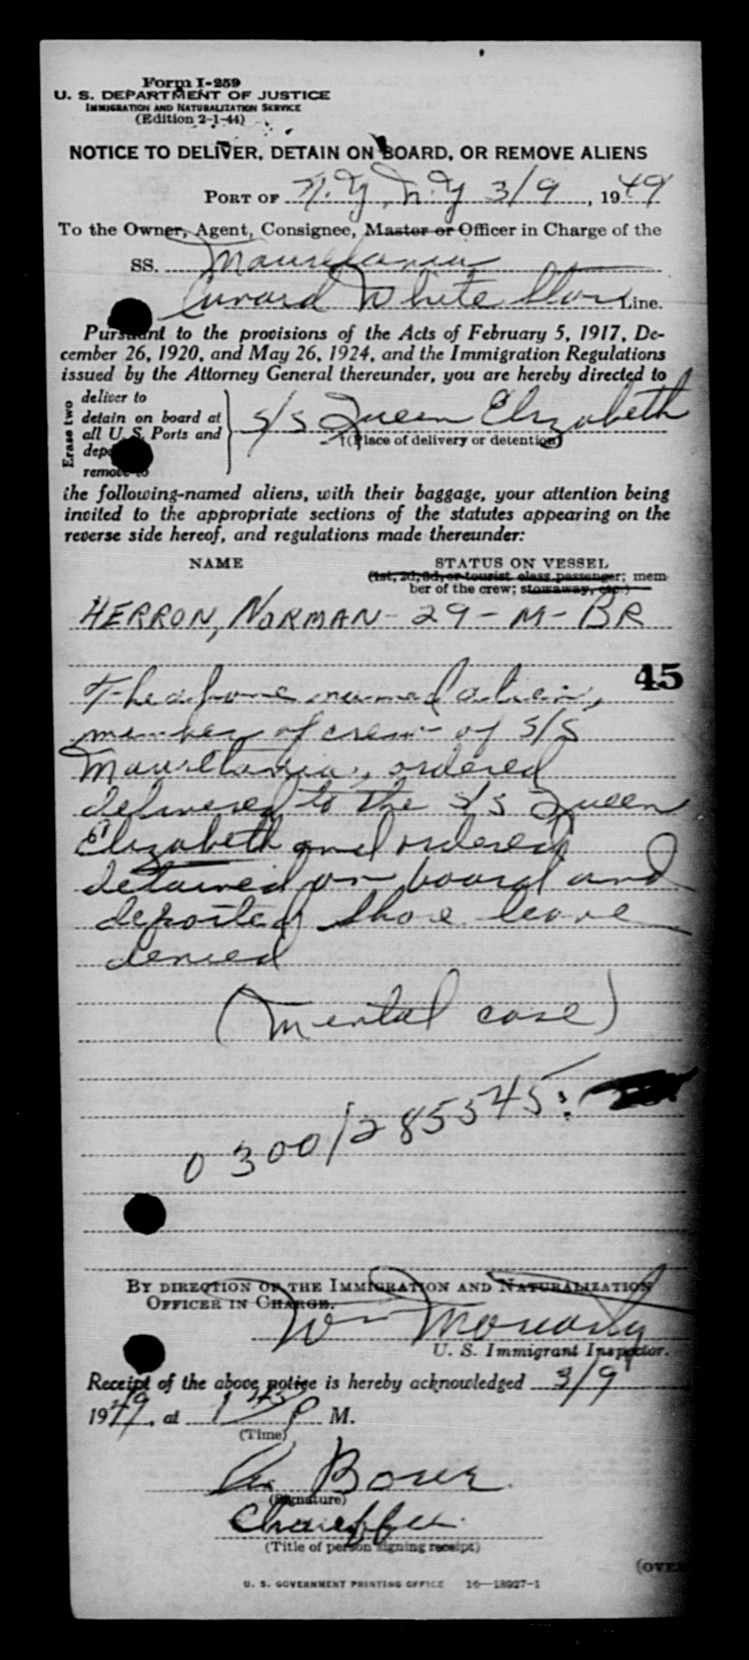 Form I-259
U. S. DEPARTMENT OF JUSTICE
IMMIGRATION AND NATURALIZATION SERVICE
(Edition 2-1-44)
NOTICE TO DELIVER, DETAIN ON BOARD, OR REMOVE ALIENS
PORT OF N.Y., N.Y 3/9, 1949
To the Owner, Agent, Consignee, Master or Officer in Charge of the
SS. Mauretania
Cunard White Star Line.
Pursuant to the provisions of the Acts of February 5, 1917, De-
cember 26, 1920, and May 26, 1924, and the Immigration Regulations
issued by the Attorney General thereunder, you are hereby directed to
Erase two
deliver to
detain on board at
all U. S. Ports and
remove to
S/S Queen Elizabeth
(Place of delivery or detention)
the following-named aliens, with their baggage, your attention being
invited to the appropriate sections of the statutes appearing on the
reverse side hereof, and regulations made thereunder:
NAME STATUS ON VESSEL
(1st, 2d, 3d, or tourist class passenger; mem-
ber of the crew; stowaway, etc.)
HERRON, NORMAN - 29 - M - BR
45
The above named alien,
member of crew of S/S
Mauretania, ordered
delivered to the S/S Queen
Elizabeth and ordered
detained on board and
deported Shore leave
denied
(mental case)
0300/285545:
BY DIRECTION OF THE IMMIGRATION AND NATURALIZATION
OFFICER IN CHARGE.
Wm Moriarty
U. S. Immigrant Inspector.
Receipt of the above notice is hereby acknowledged 3/9
1949, at P M.
(Time)
(Signature)
Chauffeur
(Title of person signing receipt)
(OVER
U. S. GOVERNMENT PRINTING OFFICE 16—18927-1